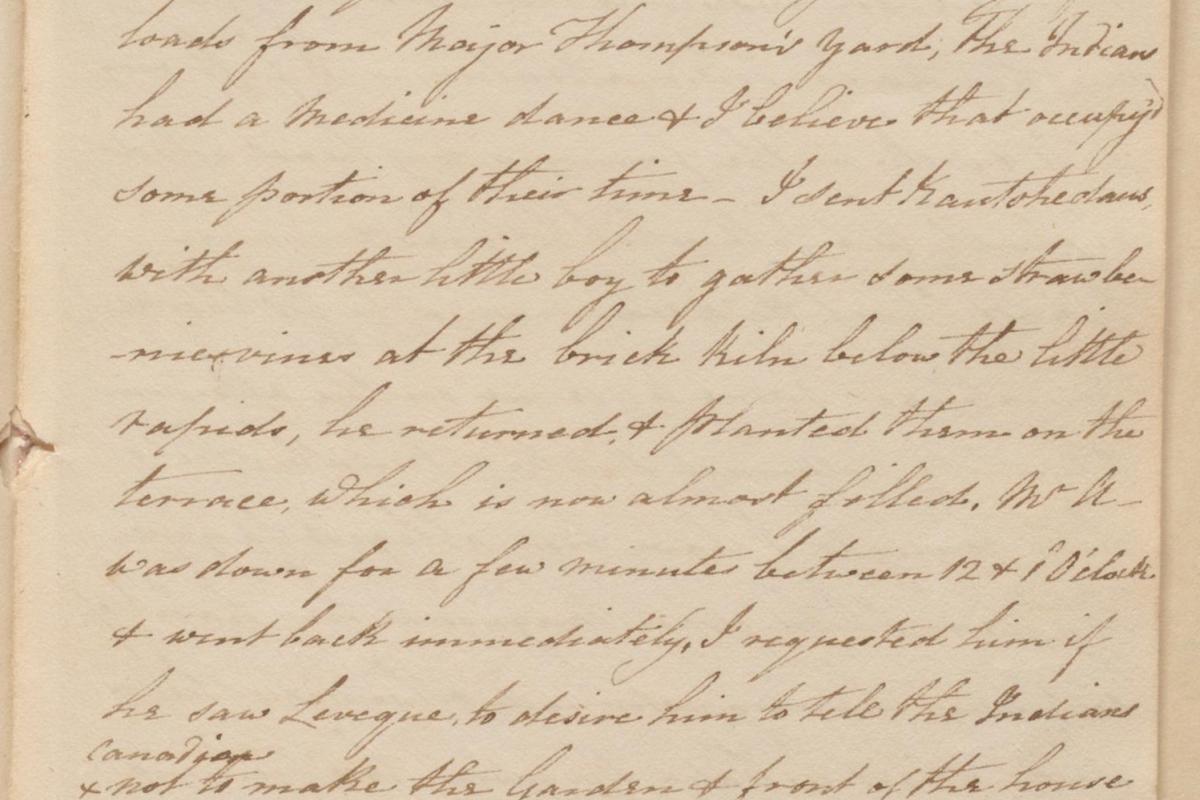 loads from Major Thompson's yard, The Indians
had a medicine dance & I believe that occupy'd
some portion of their time - I sent
with another little boy to gather some strawbe
-rie vines at the brick kiln below the little
rapids, he returned, & planted them on the
terrace, which is now almost filled. Mr A-
was down for a few minutes between 12 & 1 O'Clock
& went back immediately, I requested him if
he saw Levegue, to desire him to tell the Indians
Canadian
x not to make the Garden & front of the house